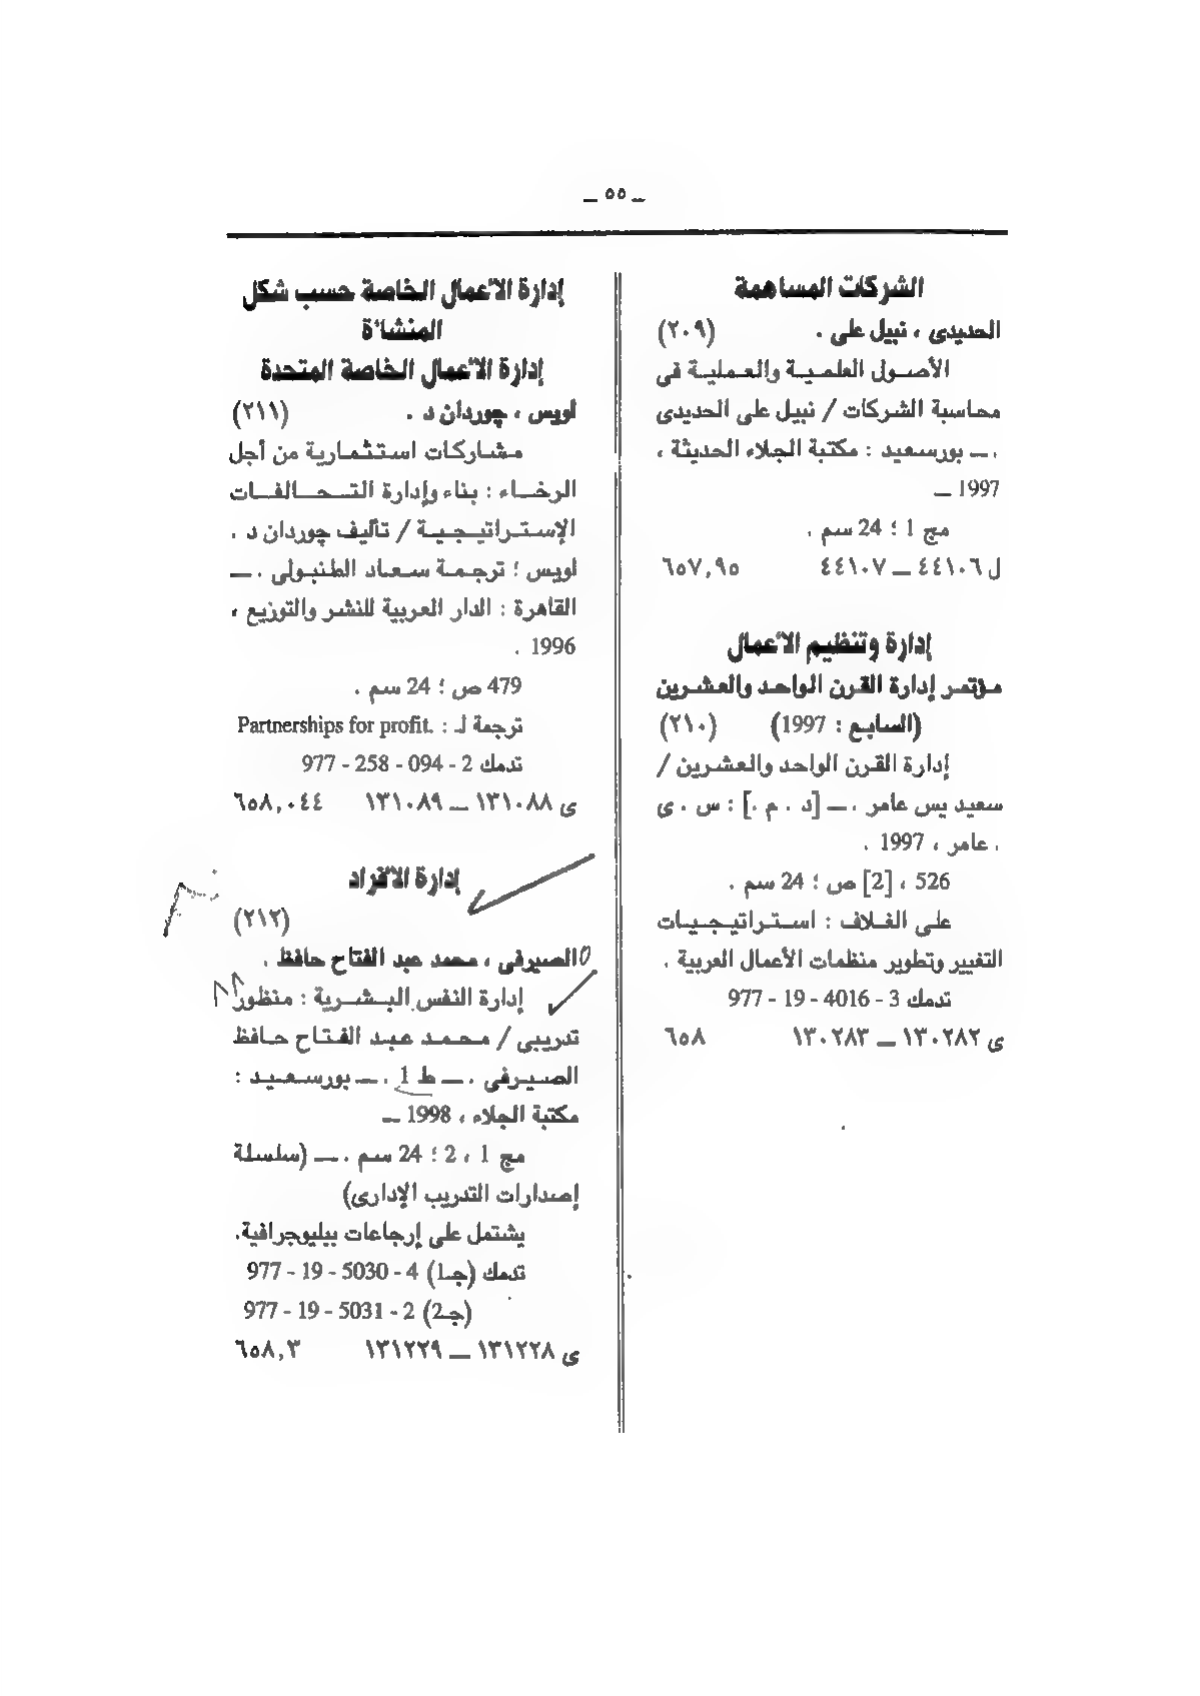 ــ ٥٥ ــ
الشركات المساهمة
الحديدى ، نبيل على . (٢٠٩)
الأصـول العلميـة والعـملية فى
محاسبة الشركات / نبيل على الحديدى
. ــ بورسعيد : مكتبة الجلاء الحديثة ،
1997 ــ
مج 1 ؛ 24 سم .
ل ٤٤١٠٦ ــ ٤٤١٠٧ ٦٥٧,٩٥
إدارة وتنظيم الأعمال
مؤتمر إدارة القرن الواحد والعشرين
(السابع : 1997) (٢١٠)
إدارة القرن الواحد والعشرين /
سعيد يس عامر . ــ [د . م .] : س . ى
. عامر ، 1997 .
526 ، [2] ص ؛ 24 سم .
على الغـلاف : استـراتيـجيـات
التغيير وتطوير منظمات الأعمال العربية .
تدمك 3 - 4016 - 19 - 977
ى ١٣٠٢٨٢ ــ ١٣٠٢٨٣ ٦٥٨
إدارة الأعمال الخاصة حسب شكل
المنشأة
إدارة الأعمال الخاصة المتحدة
لويس ، چوردان د . (٢١١)
مشـاركات استـثـمـارية من أجل
الرخـاء : بناء وإدارة التـحـالفـات
الإستـراتيـجـيـة / تأليف چوردان د .
لويس ؛ ترجمة سعاد الطنبولى . ــ
القاهرة : الدار العربية للنشر والتوزيع ،
1996 .
479 ص ؛ 24 سم .
ترجمة لـ : Partnerships for profit.
تدمك 2 - 094 - 258 - 977
ى ١٣١٠٨٨ ــ ١٣١٠٨٩ ٦٥٨,٠٤٤
إدارة الأفراد
(٢١٢)
الصيرفى ، محمد عبد الفتاح حافظ .
إدارة النفس البـشـرية : منظور
تدريبى / محـمـد عبـد الفـتـاح حـافظ
الصيرفى . ــ ط 1 . ــ بورسـعـيـد :
مكتبة الجلاء ، 1998 ــ
مج 1 ، 2 ؛ 24 سم . ــ (سلسلة
إصدارات التدريب الإدارى)
يشتمل على إرجاعات ببليوجرافية.
تدمك (جـ1) 4 - 5030 - 19 - 977
(جـ2) 2 - 5031 - 19 - 977
ى ١٣١٢٢٨ ــ ١٣١٢٢٩ ٦٥٨,٣